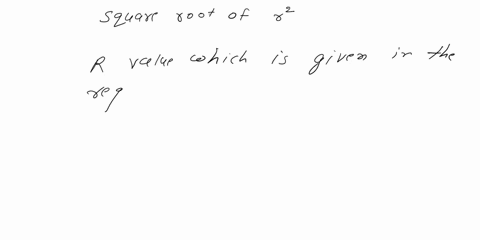 square root of r²
R value which is given in the
reg